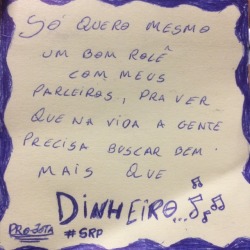 SÓ QUERO MESMO
UM BOM ROLÊ
COM MEUS
PARCEIROS, PRA VER
QUE NA VIDA A GENTE
PRECISA BUSCAR BEM
MAIS QUE
DINHEIRO...
PROJOTA
#SRP